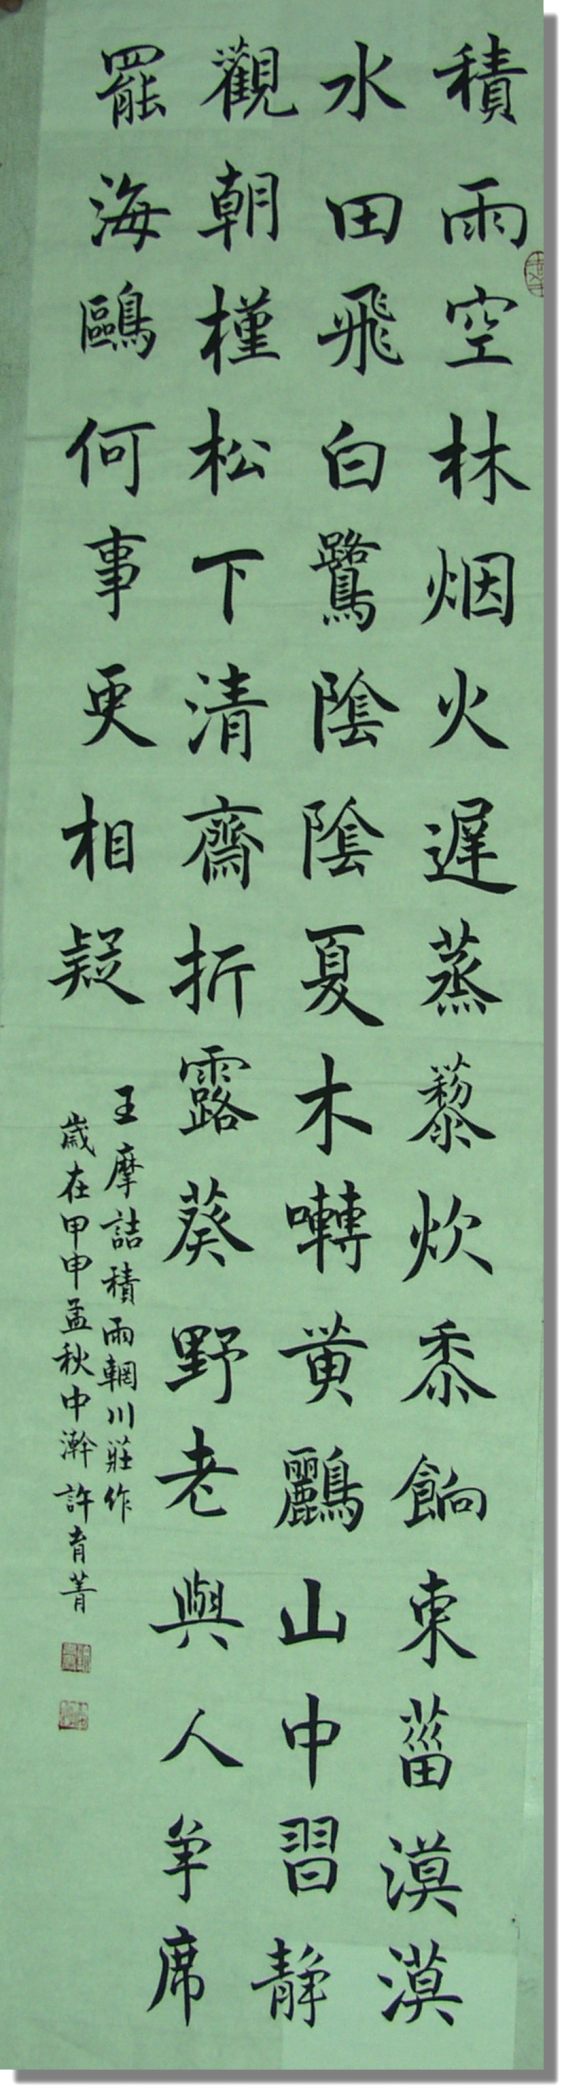 積雨空林烟火遲蒸藜炊黍餉東菑漠漠
水田飛白鷺陰陰夏木囀黄鸝山中習静
觀朝槿松下清齋折露葵野老與人争席
罷海鷗何事更相疑
王摩詰積雨輞川莊作
歲在甲申孟秋中澣許青菁